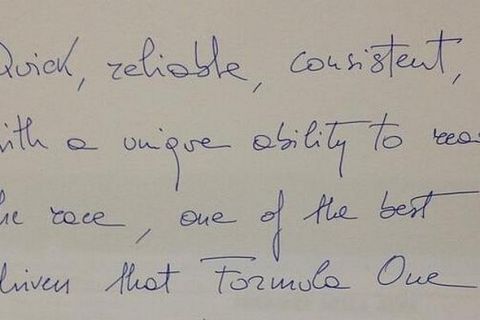 Quick, reliable, consistent,
with a unique ability to
the race, one of the best
that Formula One